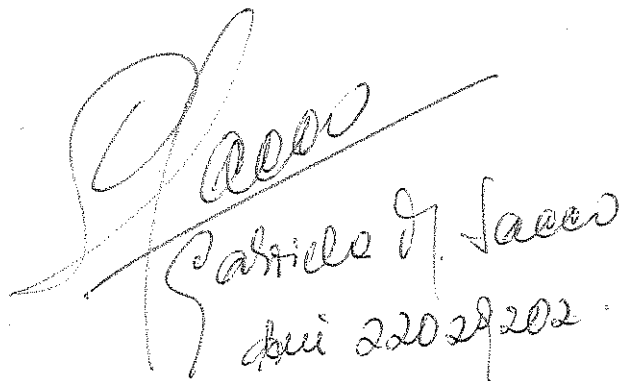 Sacco
Gabriela M. Sacco
dni 22029202.